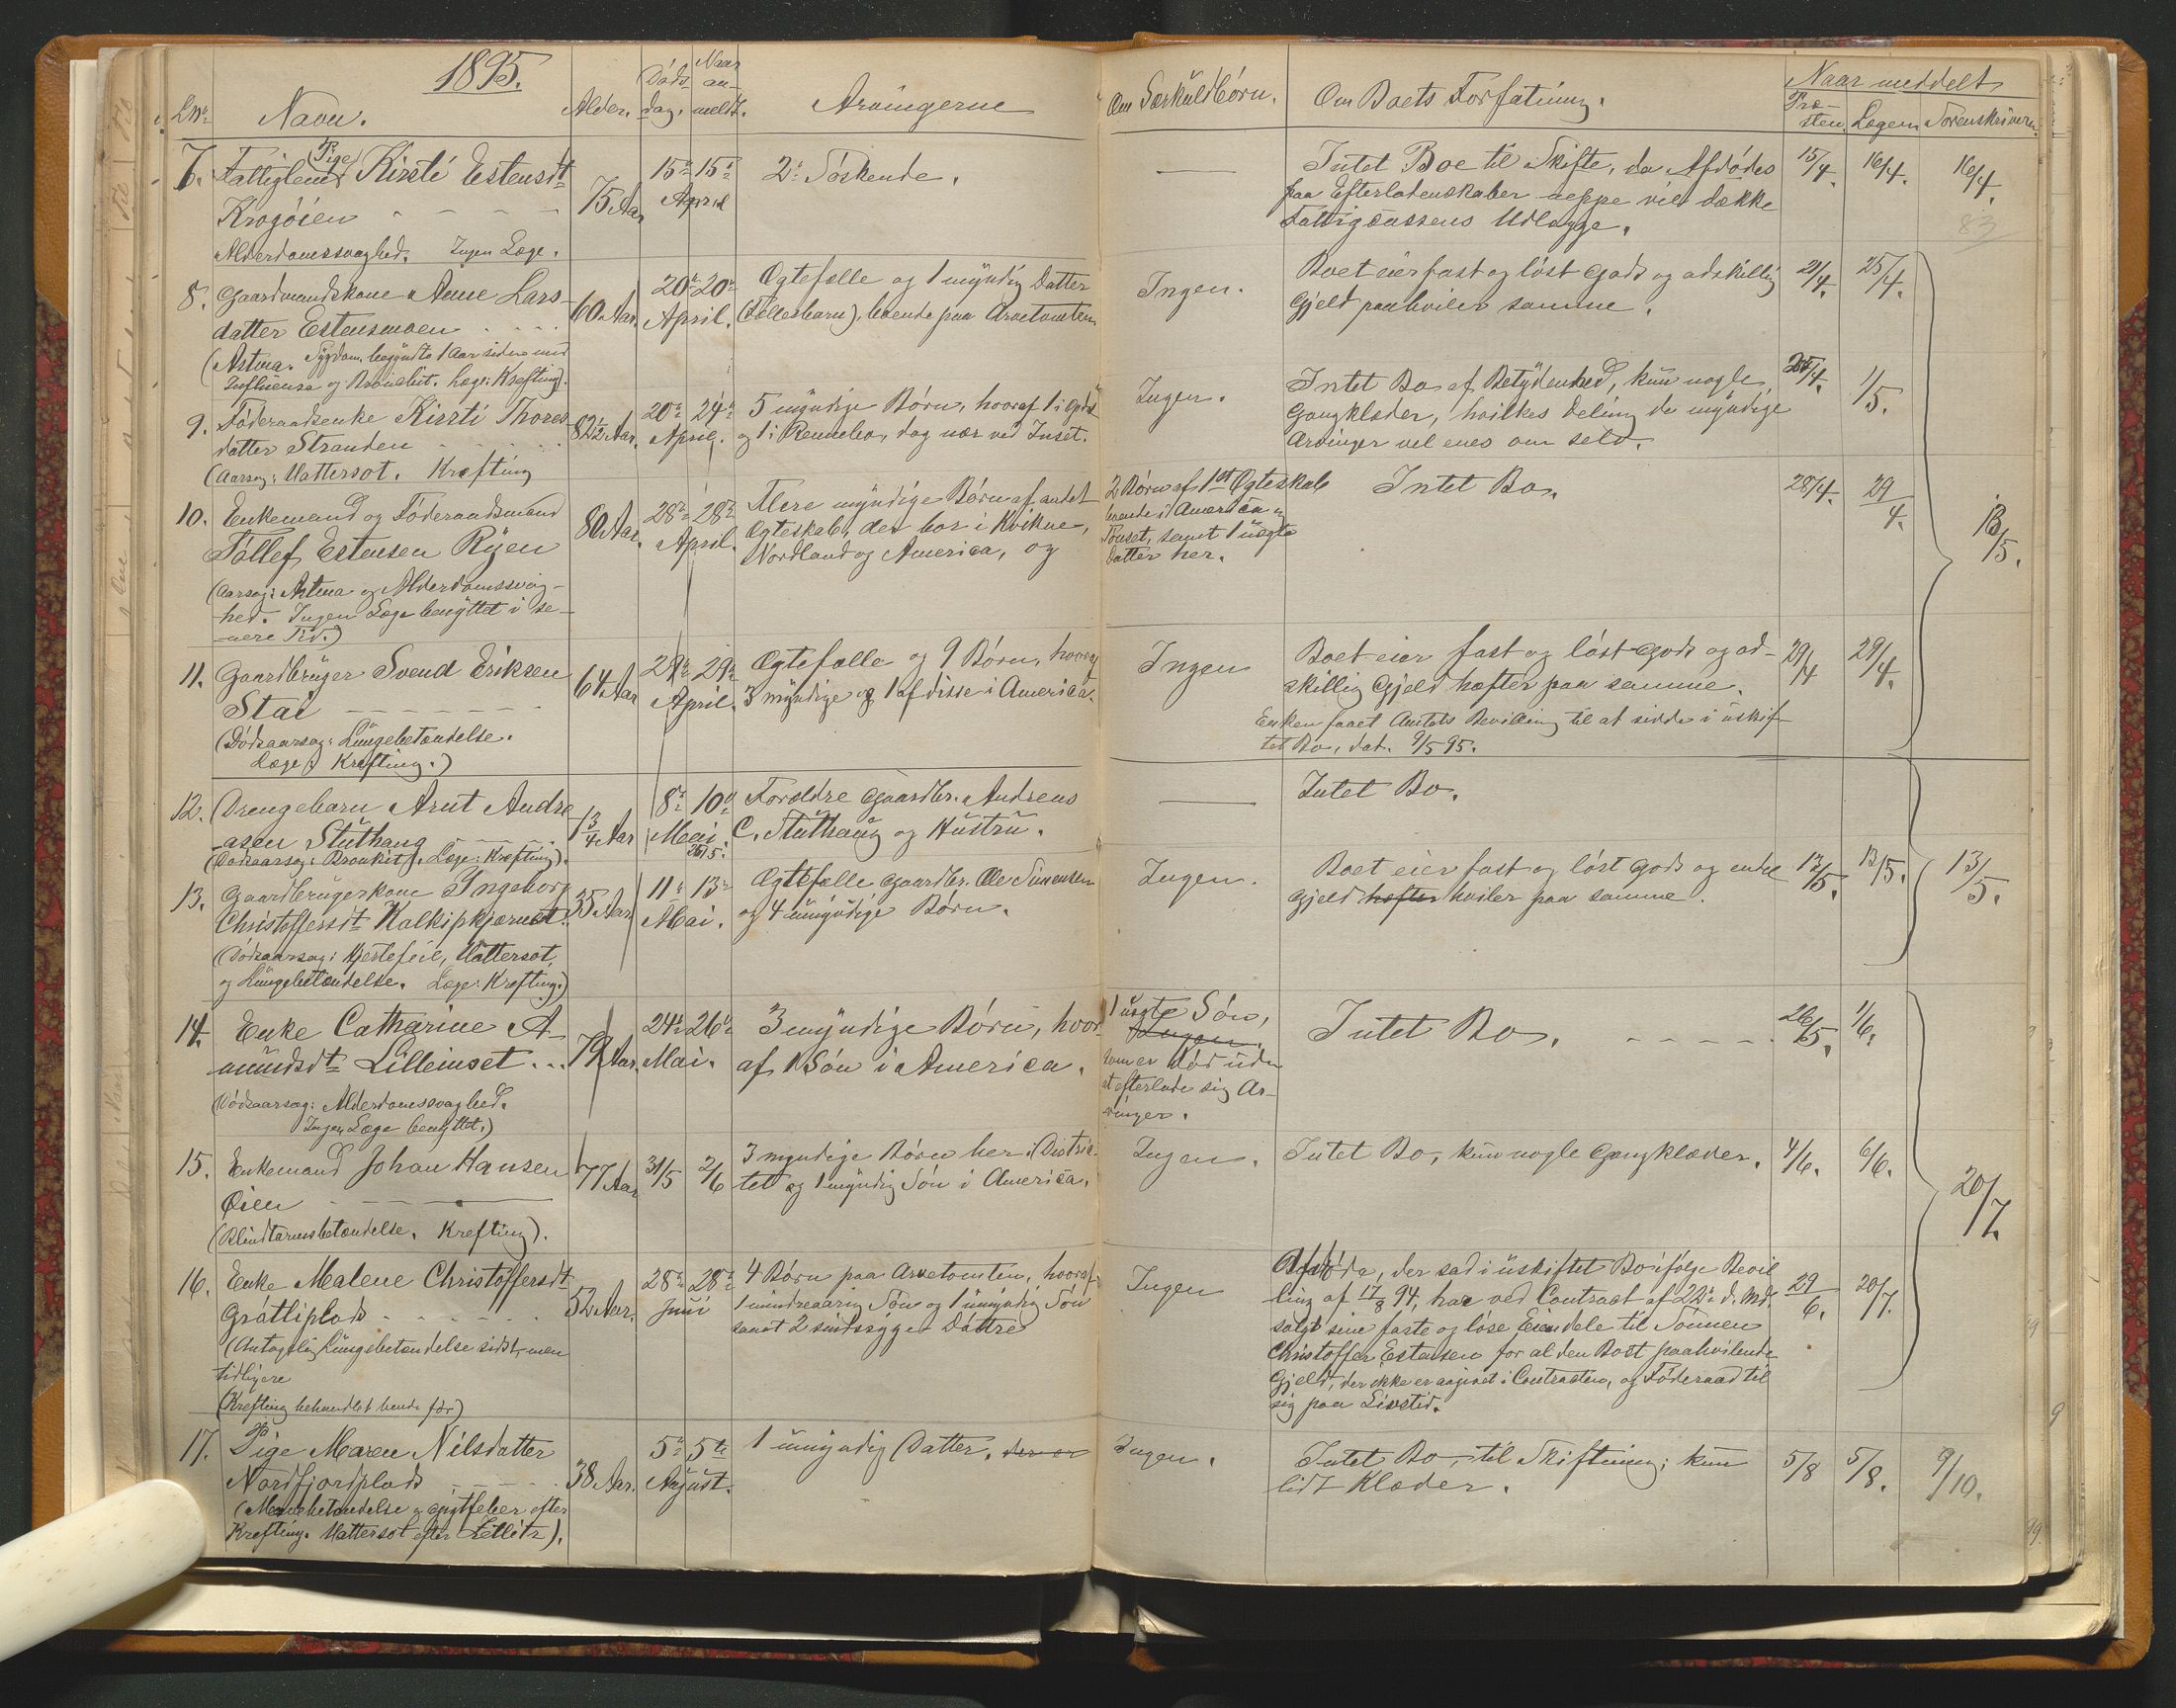 1895.
Lnr Navn. Alder. Døds- dag. Naar an- meldt. Arvingerne Om Særkuldbørn. Om Boets Forfatning. Naar meddelt
Præ- sten. Lægen Sorenskriveren.
7. Fattiglem (Pige) Kirsti Estensdtr 75 Aar 15de 15de April 2de Søskende. — Intet Boe til Skifte, da Afdødes 15/4. 16/4. 16/4.
Krogøien - - - - paa Efterladenskaber neppe vil dække
Alderdomssvaghed. Ingen Læge. Fattigcassens Udlægge. 83
8. Gaardmandskone Anne Lars- 60 Aar. 20de 20de April. Ægtefælle og 1 myndig Datter Ingen. Boet eier fast og løst Gods og adskillig 21/4. 25/4.
datter Estensmoen (Fællesbarn), boende paa Arvetomten Gjeld paahviler samme.
(Astma. Sygdom. begyndte 1 Aar siden med
Influensa og Bronchit. Læge: Krefting).
9. Føderaadsenke Kirsti Thores- 82½ Aar. 20de 24de April. 5 myndige Børn, hvoraf 1 i Opdal Ingen. Intet Bo af Betydenhed, kun nogle 25/4. 1/5.
datter Stranden og 1 i Rennebo, dog nær ved Inset. Gangklæder, hvilkes Deling de myndige
(Aarsag: Vattersot. Krefting Arvinger vel enes om selv.
10. Enkemand og Føderaadsmand 80 Aar. 28de 28de April. Flere myndige Børn af andet 2 Børn af 1st Ægteskab Intet Bo. 28/4. 29/4. 13/5.
Tollef Estensen Ryen Ægteskab, der bor i Kvikne, boende i America og
Nordland og America, og Tønset, samt 1 uægte
(Aarsag: Astma og Alderdomssvag- Datter her.
hed. Ingen Læge benyttet i se-
nere Tid.)
11. Gaardbruger Svend Eriksen 64 Aar 29de 29de April. Ægtefælle og 9 Børn, hvoraf Ingen Boet eier fast og løst Gods og ad- 29/4 29/4.
Stai - - - - 3 myndige og 1 af disse i America. skillig Gjeld hæfter paa samme.
(Dødsaarsag: Lungebetændelse. Enken faaet Amtets Bevilling til at sidde i uskif-
Læge: Krefting.) tet Bo, dat. 9/5 95.
12. Drengebarn Arnt Andre- 1¾ Aar 8de 10de Mai. Forældre Gaardbr. Andreas — Intet Bo.
asen Stuthaug C. Stuthaug og Hustru.
(Dødsaarsag: Bronkit. Læge: Krefting).
13. Gaardbrugerkone Ingeborg 35 Aar 11de 13de Mai. Ægtefælle Gaardbr. Ole Simensen Ingen. Boet eier fast og løst Gods og endel 13/5. 13/5. 13/5.
Christoffersdtr Kalkipkjærnet. og 4 umyndige Børn. Gjeld hæfter hviler paa samme.
(Dødsaarsag: Hjertefeil, Vattersot,
og Lungebetændelse. Læge: Krefting.)
14. Enke Catharine A- 79 Aar. 24de 26de Mai. 3 myndige Børn, hvor- 1 uægte Søn, Intet Bo. - - - - 26/5. 1/6.
mundsdtr Lilleinset ... af 1 Søn i America. Ingen.
som er død uden
(Dødsaarsag: Alderdomssvaghed. at efterlade sig Ar-
Ingen Læge benyttet.) vinger.
15. Enkemand Johan Hansen 77 Aar 31/5 2/6 3 myndige Børn her i Distric- Ingen. Intet Bo, kun nogle Gangklæder. 4/6. 6/6.
Øien — tet og 1 myndig Søn i America. 20/7.
(Blindtarmsbetændelse. Krefting).
16. Enke Malene Christoffersdtr 52 Aar. 28de 28de Juni 4 Børn paa Arvetomten, hvoraf Ingen Afdøde, der sad i uskiftet Bo ifølge Bevil- 29/6. 20/7.
Gråttiplads 1 mindreaarig Søn og 1 umyndig Søn ling af 17/8 94, har ved Contract af 22de d. Md.
samt 2 sindssyge Døttre solgt sine faste og løse Eiendele til Sønnen
(Antagelig Lungebetændelse sidst, men Christoffer Estensen for al den Bost paahvilende
tidligere Gjeld, der ikke er angivet i Contracten, og Føderaad til
(Krefting behandlet hende før) sig paa Livstid.
17. Pige Maren Nilsdatter 38 Aar. 5te 5te August. 1 umyndig Datter. der er Ingen. Intet Bo til Skiftning; kun 5/8 5/8. 9/10.
Nordfjordplads lidt Klæder.
Krefting. Vattersot efter